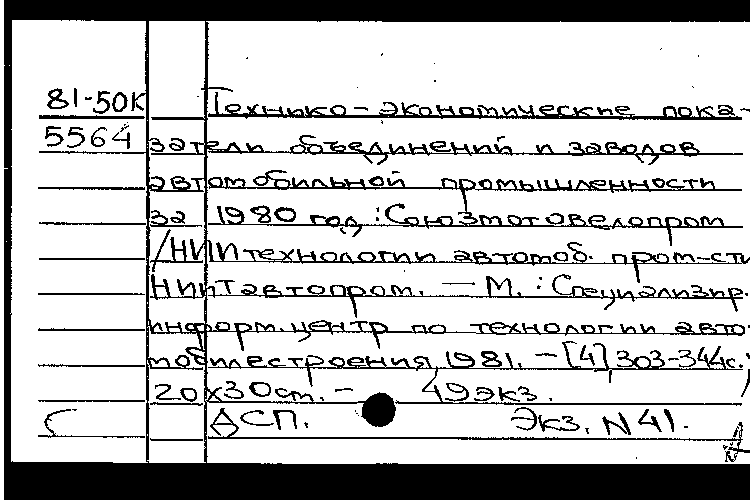 81-50К Технико-экономические пока-
5564 затели объединений и заводов
автомобильной промышленности
за 1980 год : Союзмотовелопром
/НИИтехнологии автомоб. пром-сти
НИИТавтопром. — М. : Специализир.
информ. центр по технологии авто-
мобилестроения, 1981. — [4], 303-344с.;
20х30см. — 49экз.
ДСП. Экз. N41.